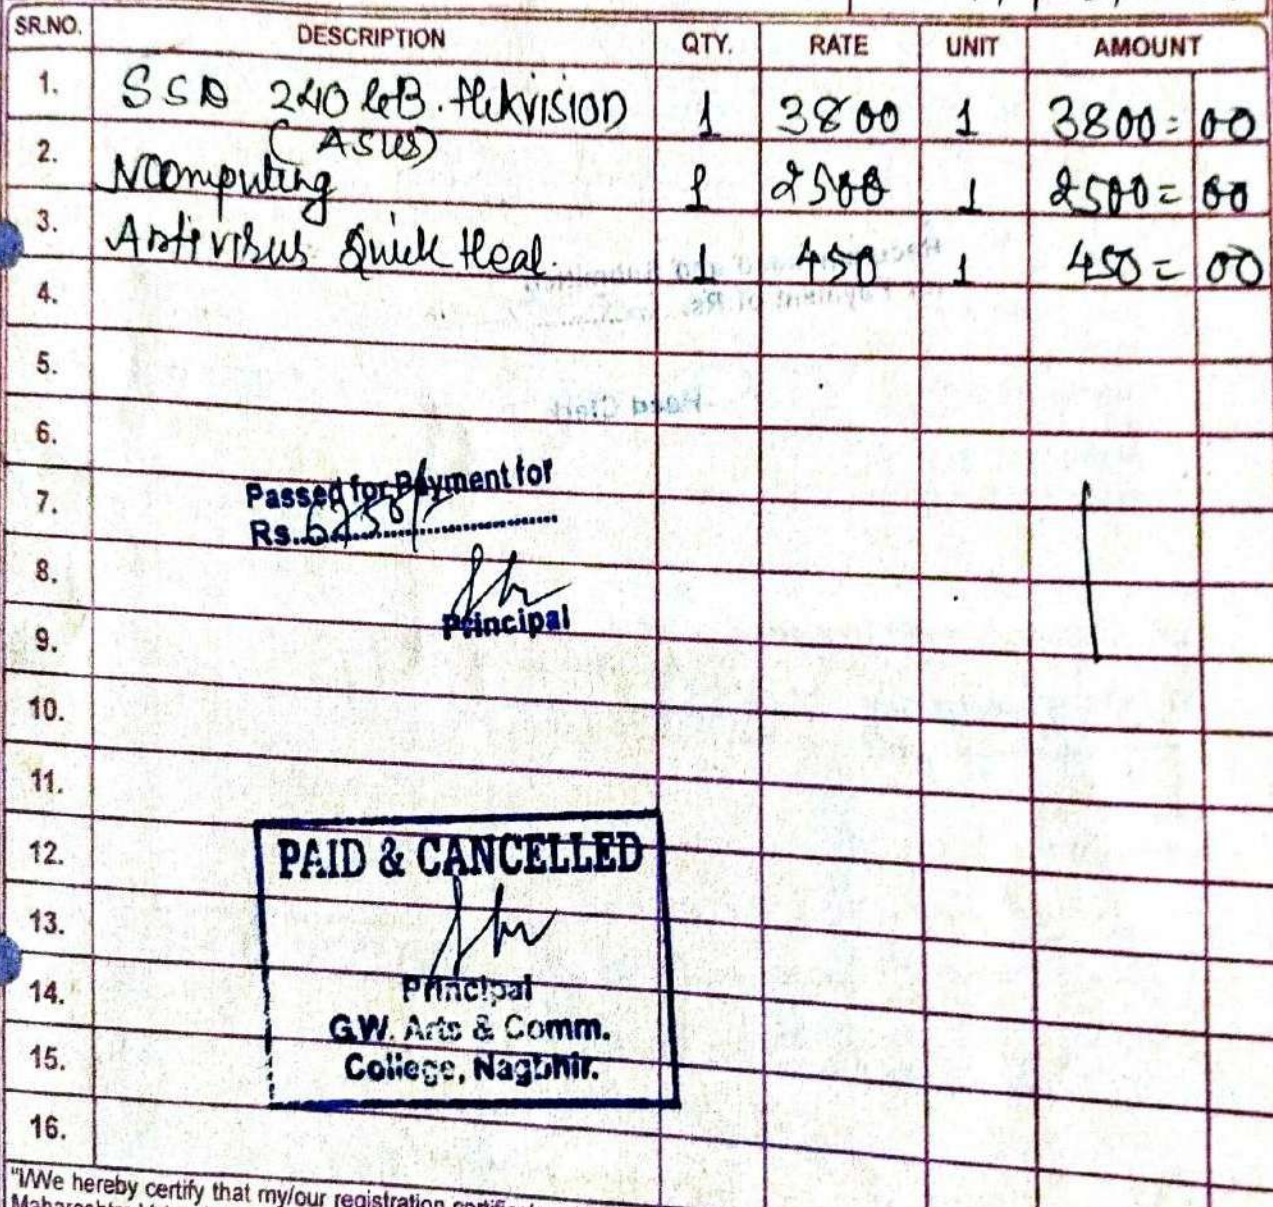 SR.NO. DESCRIPTION QTY. RATE UNIT AMOUNT
1. SSD 240 GB. Hikvision 1 3800 1 3800=00
(ASUS)
2. NComputing 1 2500 1 2500=00
3. Antivirus Quick Heal. 1 450 1 450=00
4.
5.
Head Clerk
6.
Passed for Payment for
7.
Rs.
8.
Principal
9.
10.
11.
12. PAID & CANCELLED
13.
14. Principal
G.W. Arts & Comm.
15. College, Nagbhir.
16.
"I/We hereby certify that my/our registration